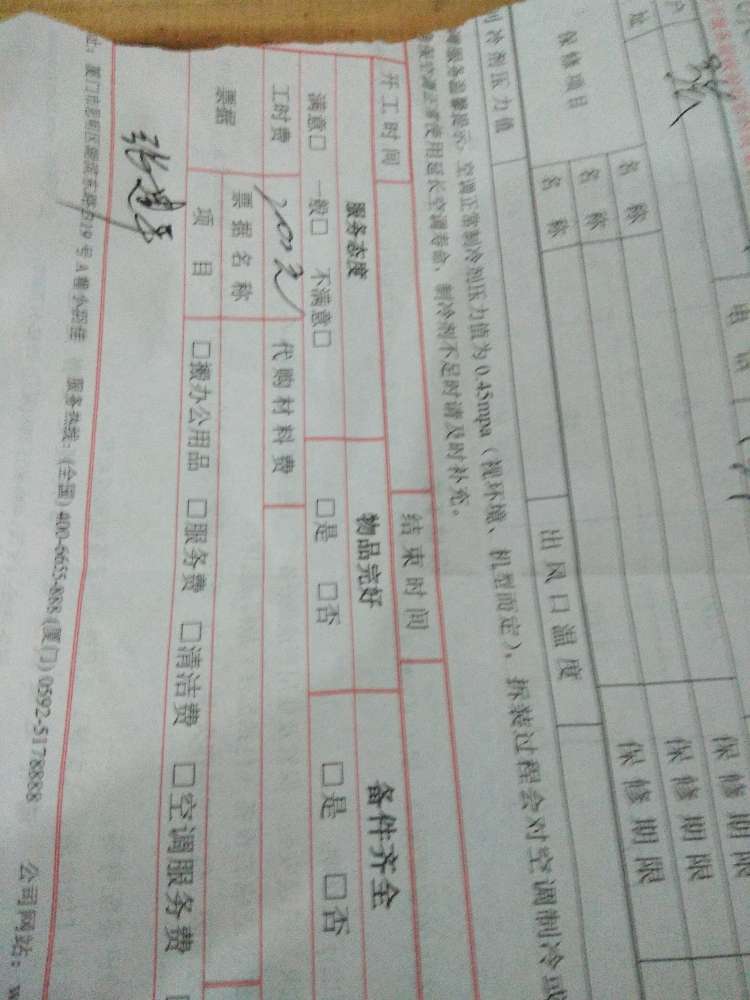 户
址
电 话
张
保修项目
名 称
保 修 期 限
名 称
保 修 期 限
名 称
保 修 期 限
制冷剂压力值
出 风 口 温 度
服务温馨提示:空调正常制冷剂压力值为0.45mpa(视环境、机型而定),拆装过程会对空调制冷
使用延长空调寿命,制冷剂不足时请及时补充。
开 工 时 间
结 束 时 间
服务态度
物品完好
备件齐全
满意□ 一般□ 不满意□
□是 □否
□是 □否
工时费
200元
代 购 材 料 费
票据
票 据 名 称
项 目
□搬办公用品 □服务费 □清洁费 □空调服务费
厦门市思明区 19号A幢 服务热线:(全国)400-6655-888(厦门)0592-5178888 公司网站:w